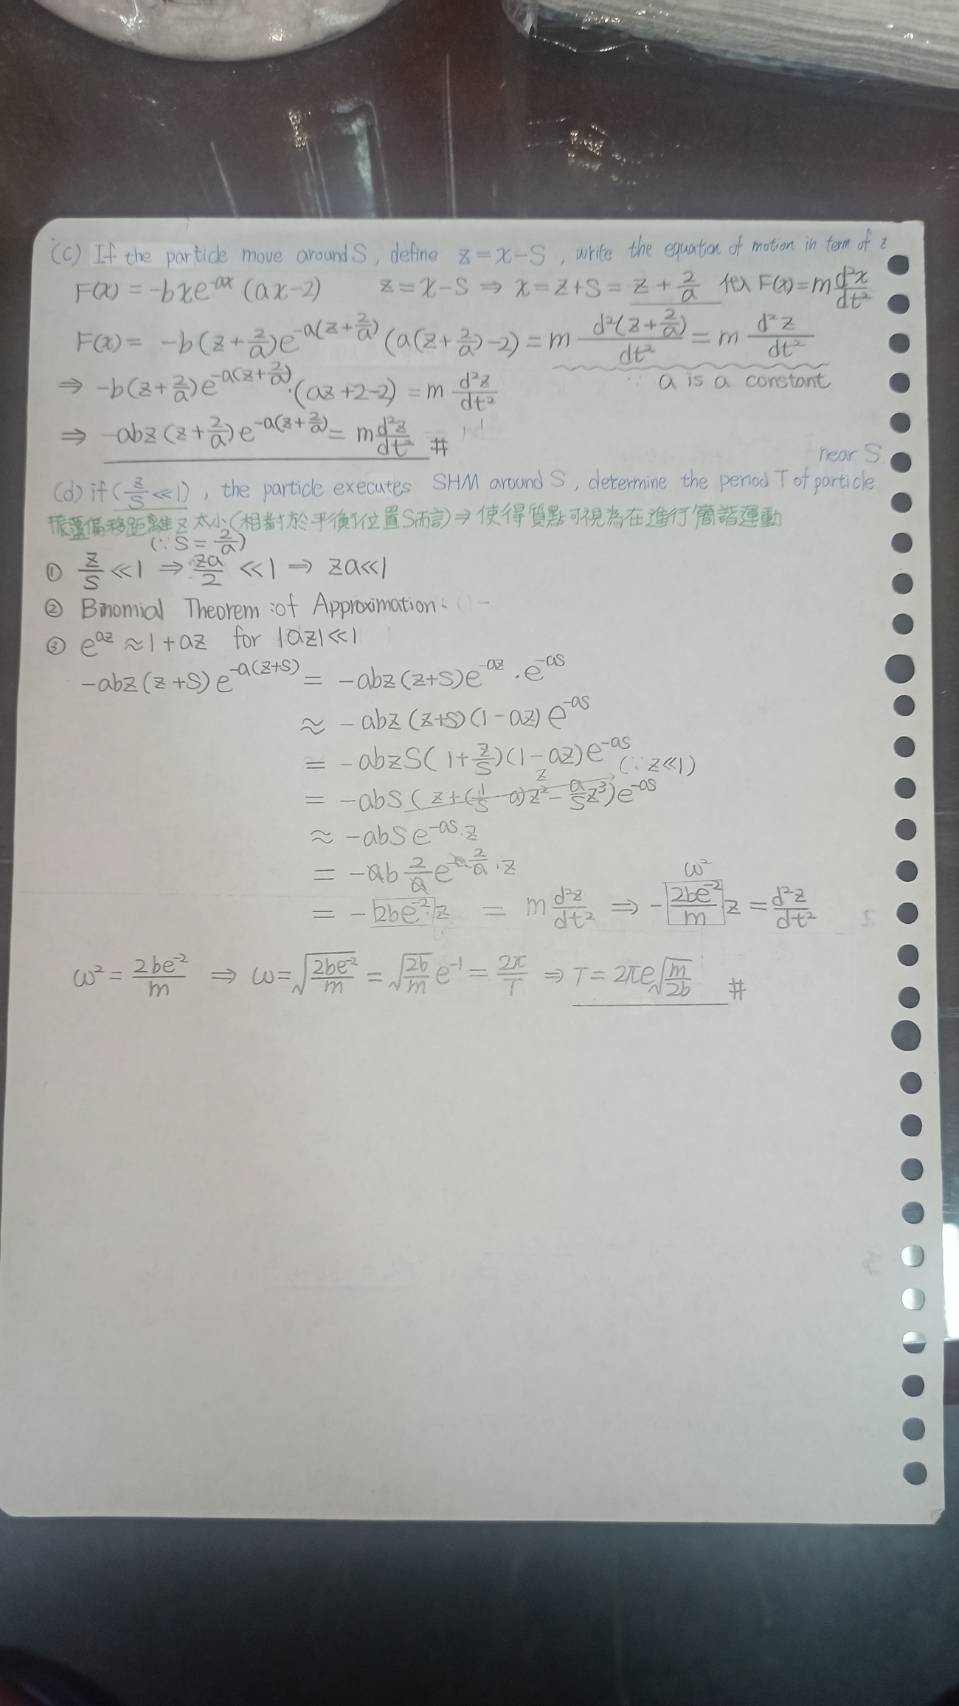 (c) If the particle move around S, define z = x-S, write the equation of motion in term of z
F(x) = -bxe^{-ax} (ax-2) z = x-S ⇒ x = z+S = z + \frac{2}{a} 代入 F(x) = m\frac{d²x}{dt²}
F(x) = -b(z+\frac{2}{a})e^{-a(z+\frac{2}{a})} (a(z+\frac{2}{a})-2) = m \frac{d²(z+\frac{2}{a})}{dt²} = m \frac{d²z}{dt²}
⇒ -b(z+\frac{2}{a})e^{-a(z+\frac{2}{a})}·(az+2-2) = m \frac{d²z}{dt²} ∵ a is a constant
⇒ -abz(z+\frac{2}{a})e^{-a(z+\frac{2}{a})} = m\frac{d²z}{dt²} #
(d) if (\frac{z}{S} ≪1), the particle executes SHM around S, determine the period T of particle near S
振盪偏移距離z太小(相對於平衡位置S而言)⇒使得質點可視為在進行簡諧運動
(∵S = \frac{2}{a})
① \frac{z}{S} ≪1 ⇒ \frac{za}{2} ≪1 ⇒ za≪1
② Binomial Theorem of Approximation:
③ e^{az} ≈ 1+az for |az|≪1
-abz(z+S)e^{-a(z+S)} = -abz(z+S)e^{-az}·e^{-aS}
≈ -abz(z+S)(1-az)e^{-aS}
= -abzS(1+\frac{z}{S})(1-az)e^{-aS}
(∵z≪1)
= -abS(z+(\frac{1}{S}-a)z²-\frac{a}{S}z³)e^{-aS}
≈ -abSe^{-aS}·z
= -ab\frac{2}{a}e^{-a·\frac{2}{a}}·z
= -2be^{-2}z = m\frac{d²z}{dt²} ⇒ -\frac{2be^{-2}}{m}z = \frac{d²z}{dt²}
ω² = \frac{2be^{-2}}{m} ⇒ ω = \sqrt{\frac{2be^{-2}}{m}} = \sqrt{\frac{2b}{m}}e^{-1} = \frac{2π}{T} ⇒ T = 2πe\sqrt{\frac{m}{2b}} #